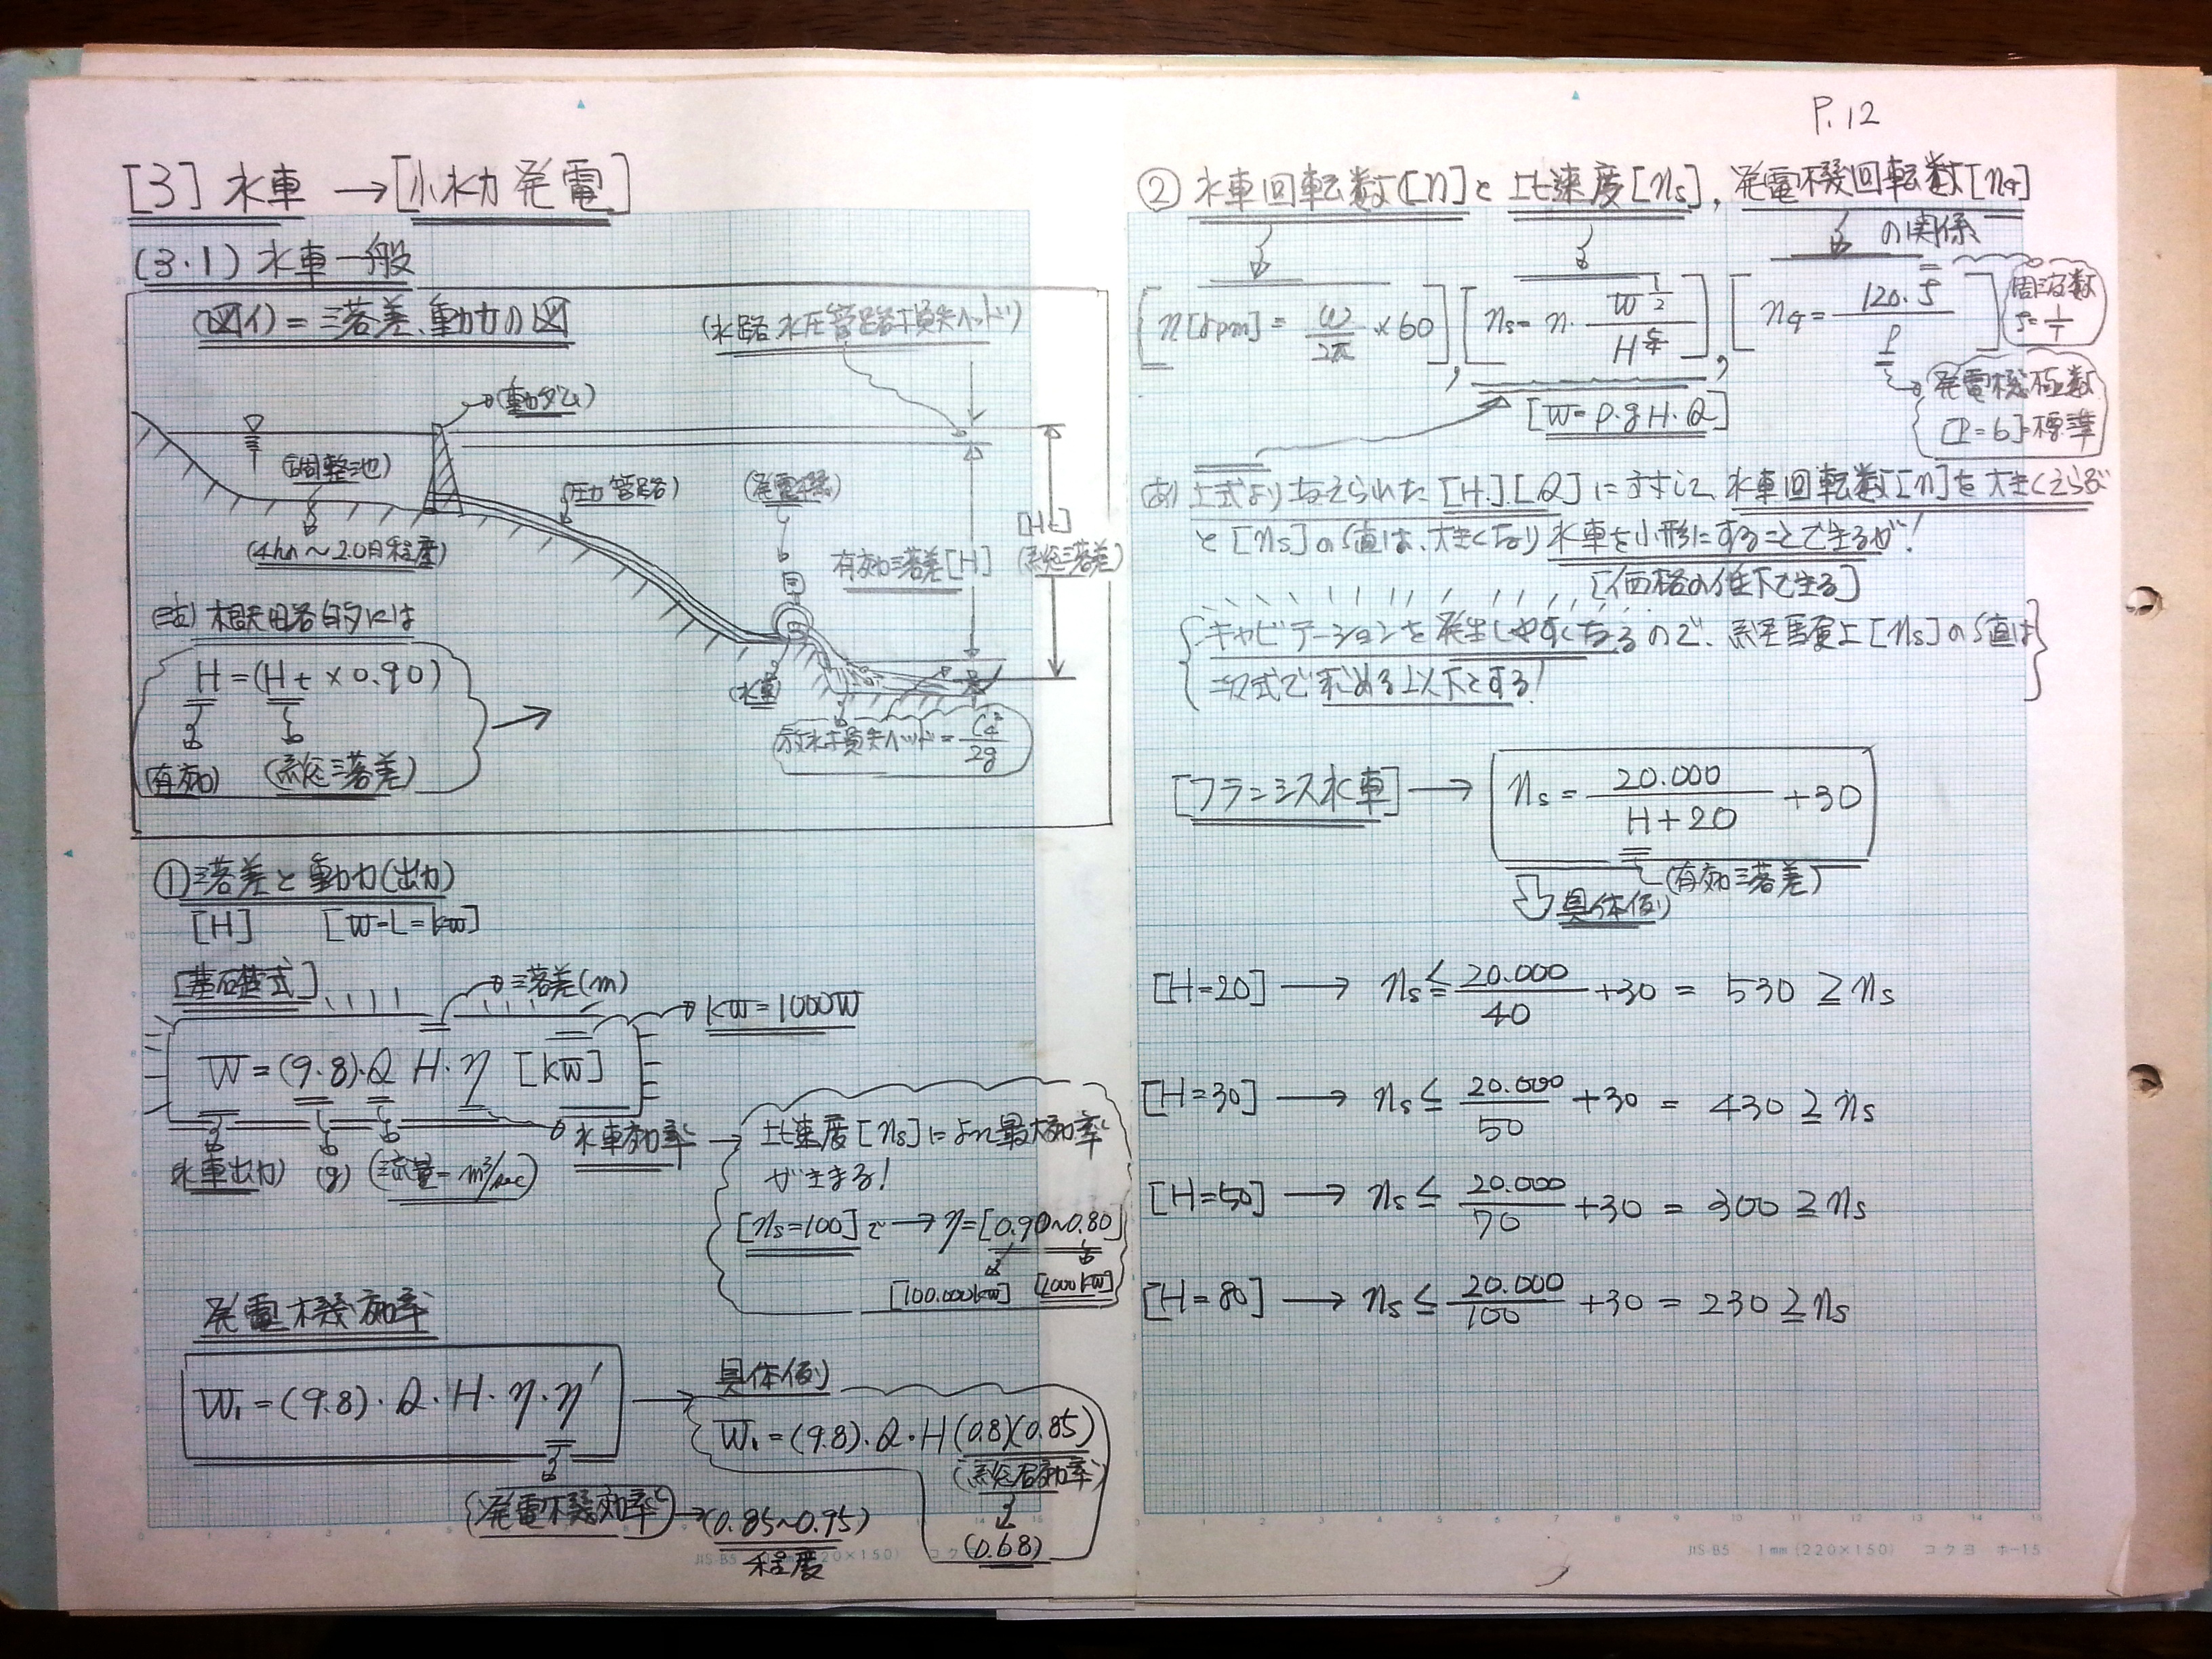 P.12
[3] 水車 → [小水力発電]
(3.1) 水車一般
(図イ) = 落差、動力の図
(水路、水圧管路損失ヘッド)
(調整池)
(4hr～20日程度)
(圧力管路)
(発電機)
有効落差[H]
[Ht]
(総落差)
(注) 概略的には
H = (Ht × 0.90)
(有効) (総落差)
(水車)
放水損失ヘッド = C₄²/2g
① 落差と動力(出力)
[H] [W=L=kW]
[基礎式]
落差(m)
kW = 1000W
W = (9.8)・Q H・η [kW]
水車出力) (g) (流量= m³/sec)
水車効率 →
比速度[ns]により最大効率
がきまる!
[ns=100]で → η=[0.90~0.80]
[100.000kW] [1000kW]
発電機効率
W₁ = (9.8)・Q・H・η・η′
(発電機効率) → (0.85~0.95)
程度
具体例)
W₁ = (9.8)・Q・H(0.8)(0.85)
(総合効率)
(0.68)
② 水車回転数[n]と比速度[ns], 発電機回転数[nq]
の関係
[n[rpm] = ω/2π × 60], [ns = n・W^{1/2}/H^{5/4}], [nq = 120.f/P]
周波数
f = 1/T
発電機極数
[P=6]=標準
[W=ρ.gH.Q]
上式より与えられた[H].[Q]に対して、水車回転数[n]を大きくえらぶ
と[ns]の値は、大きくなり水車を小形にすることできるが!
[価格の低下できる]
キャビテーションを発生しやすくなるので、経験上[ns]の値は
次式で求める以下とする!
[フランシス水車] → ns = 20.000/H+20 +30
(有効落差)
具体例)
[H=20] → ns ≦ 20.000/40 +30 = 530 ≧ ns
[H=30] → ns ≦ 20.000/50 +30 = 430 ≧ ns
[H=50] → ns ≦ 20.000/70 +30 = 300 ≧ ns
[H=80] → ns ≦ 20.000/100 +30 = 230 ≧ ns
JIS B5 1mm (220×150) コクヨ ホ-15